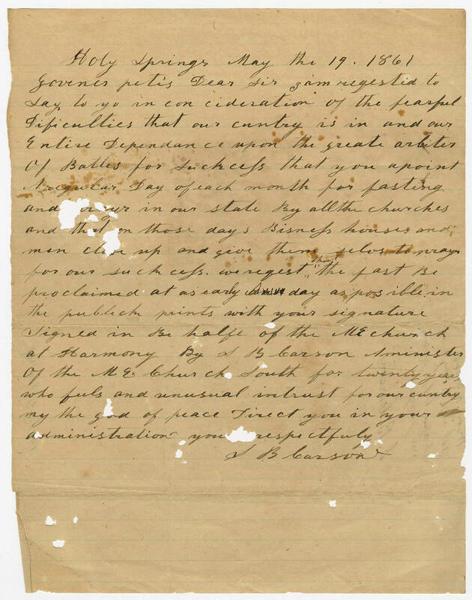 Holy Springs May the 19. 1861
Govener petis Dear Sir I am regested to
Say to yo in con cideration of the fearful
Dificulties that our cuntry is in and our
Entire Dependance upon the great arbiter
Of Batles for Suckcess that you apoint
A regular Day of each month for fasting
and in our state By all the churches
and that on those days Bisness houses and
men close up and give them selvs to prayr
for our suck cess. we regest the fast Be
proclaimed at as early day as posible in
the publick prints with your signature
Signed in Be halfe of the ME church
at Harmony By S B Carson A minister
Of the M E Church South for twenty years
who fuls and unusual intrust for our cuntry
my the god of peace Direct you in your
administration your respectfuly
S B Carson